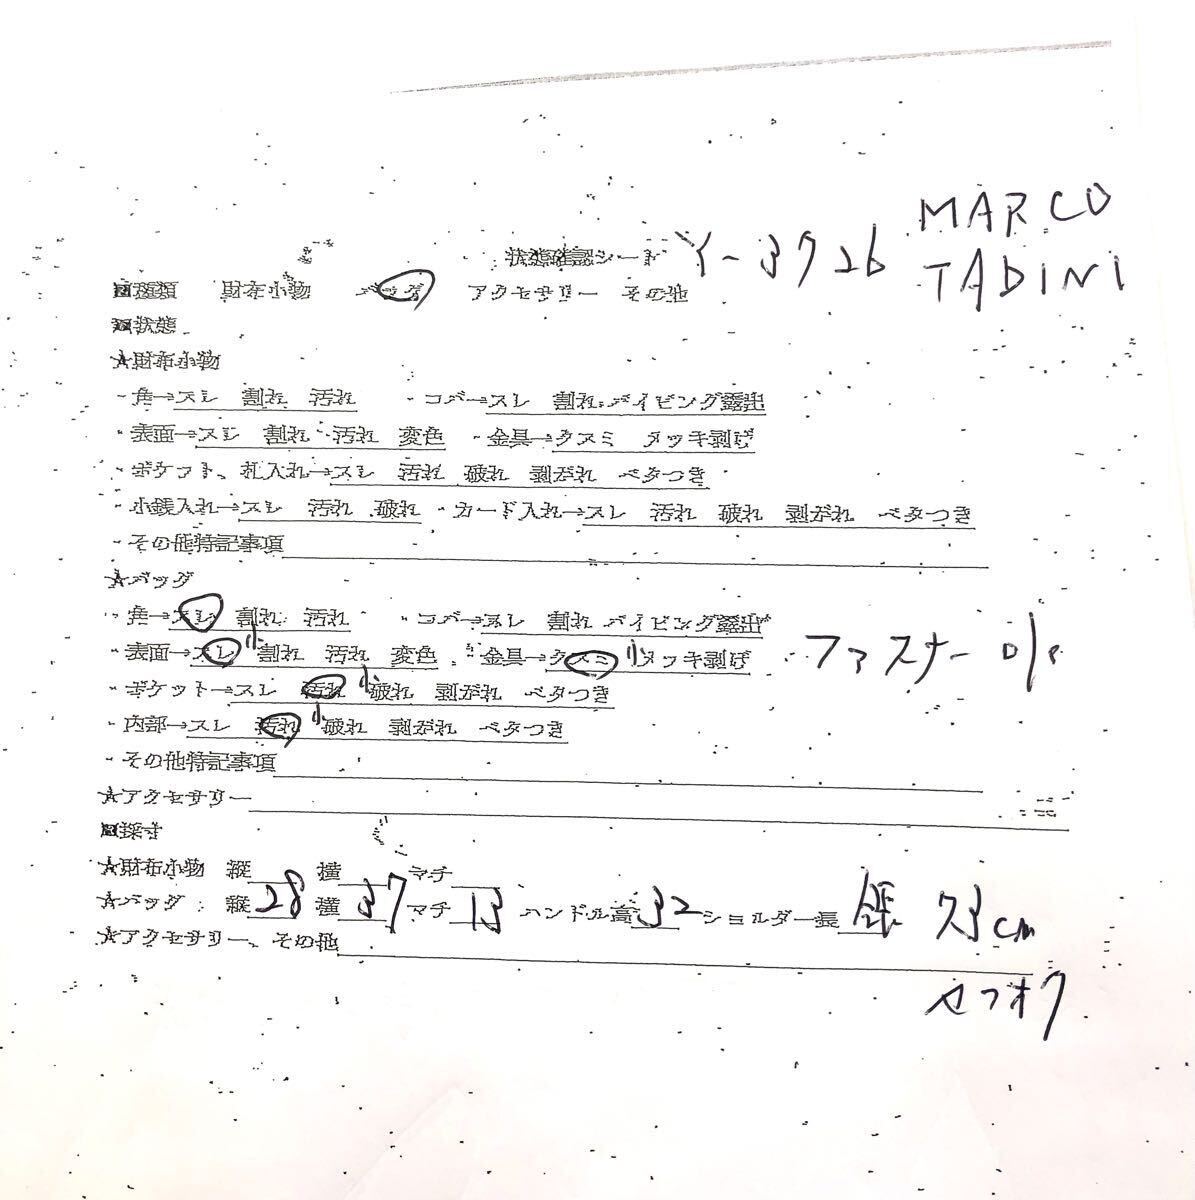 MARCO
状態確認シート Y-3726 TADINI
■種類 財布小物 バッグ アクセサリー その他
■状態
★財布小物
・角→スレ 割れ 汚れ ・コバ→スレ 割れ パイピング露出
・表面→スレ 割れ 汚れ 変色 ・金具→クスミ メッキ剥げ
・ポケット、札入れ→スレ 汚れ 破れ 剥がれ ベタつき
・小銭入れ→スレ 汚れ 破れ ・カード入れ→スレ 汚れ 破れ 剥がれ ベタつき
・その他特記事項
★バッグ
・角→スレ 割れ 汚れ ・コバ→スレ 割れ パイピング露出
・表面→スレ 小 割れ 汚れ 変色 ・金具→クスミ 小 メッキ剥げ ファスナー
・ポケット→スレ 汚れ 小 破れ 剥がれ ベタつき
・内部→スレ 汚れ 小 破れ 剥がれ ベタつき
・その他特記事項
★アクセサリー
■採寸
★財布小物 縦 横 マチ
★バッグ 縦 28 横 37 マチ 13 ハンドル高 32 ショルダー長 73cm
★アクセサリー、その他